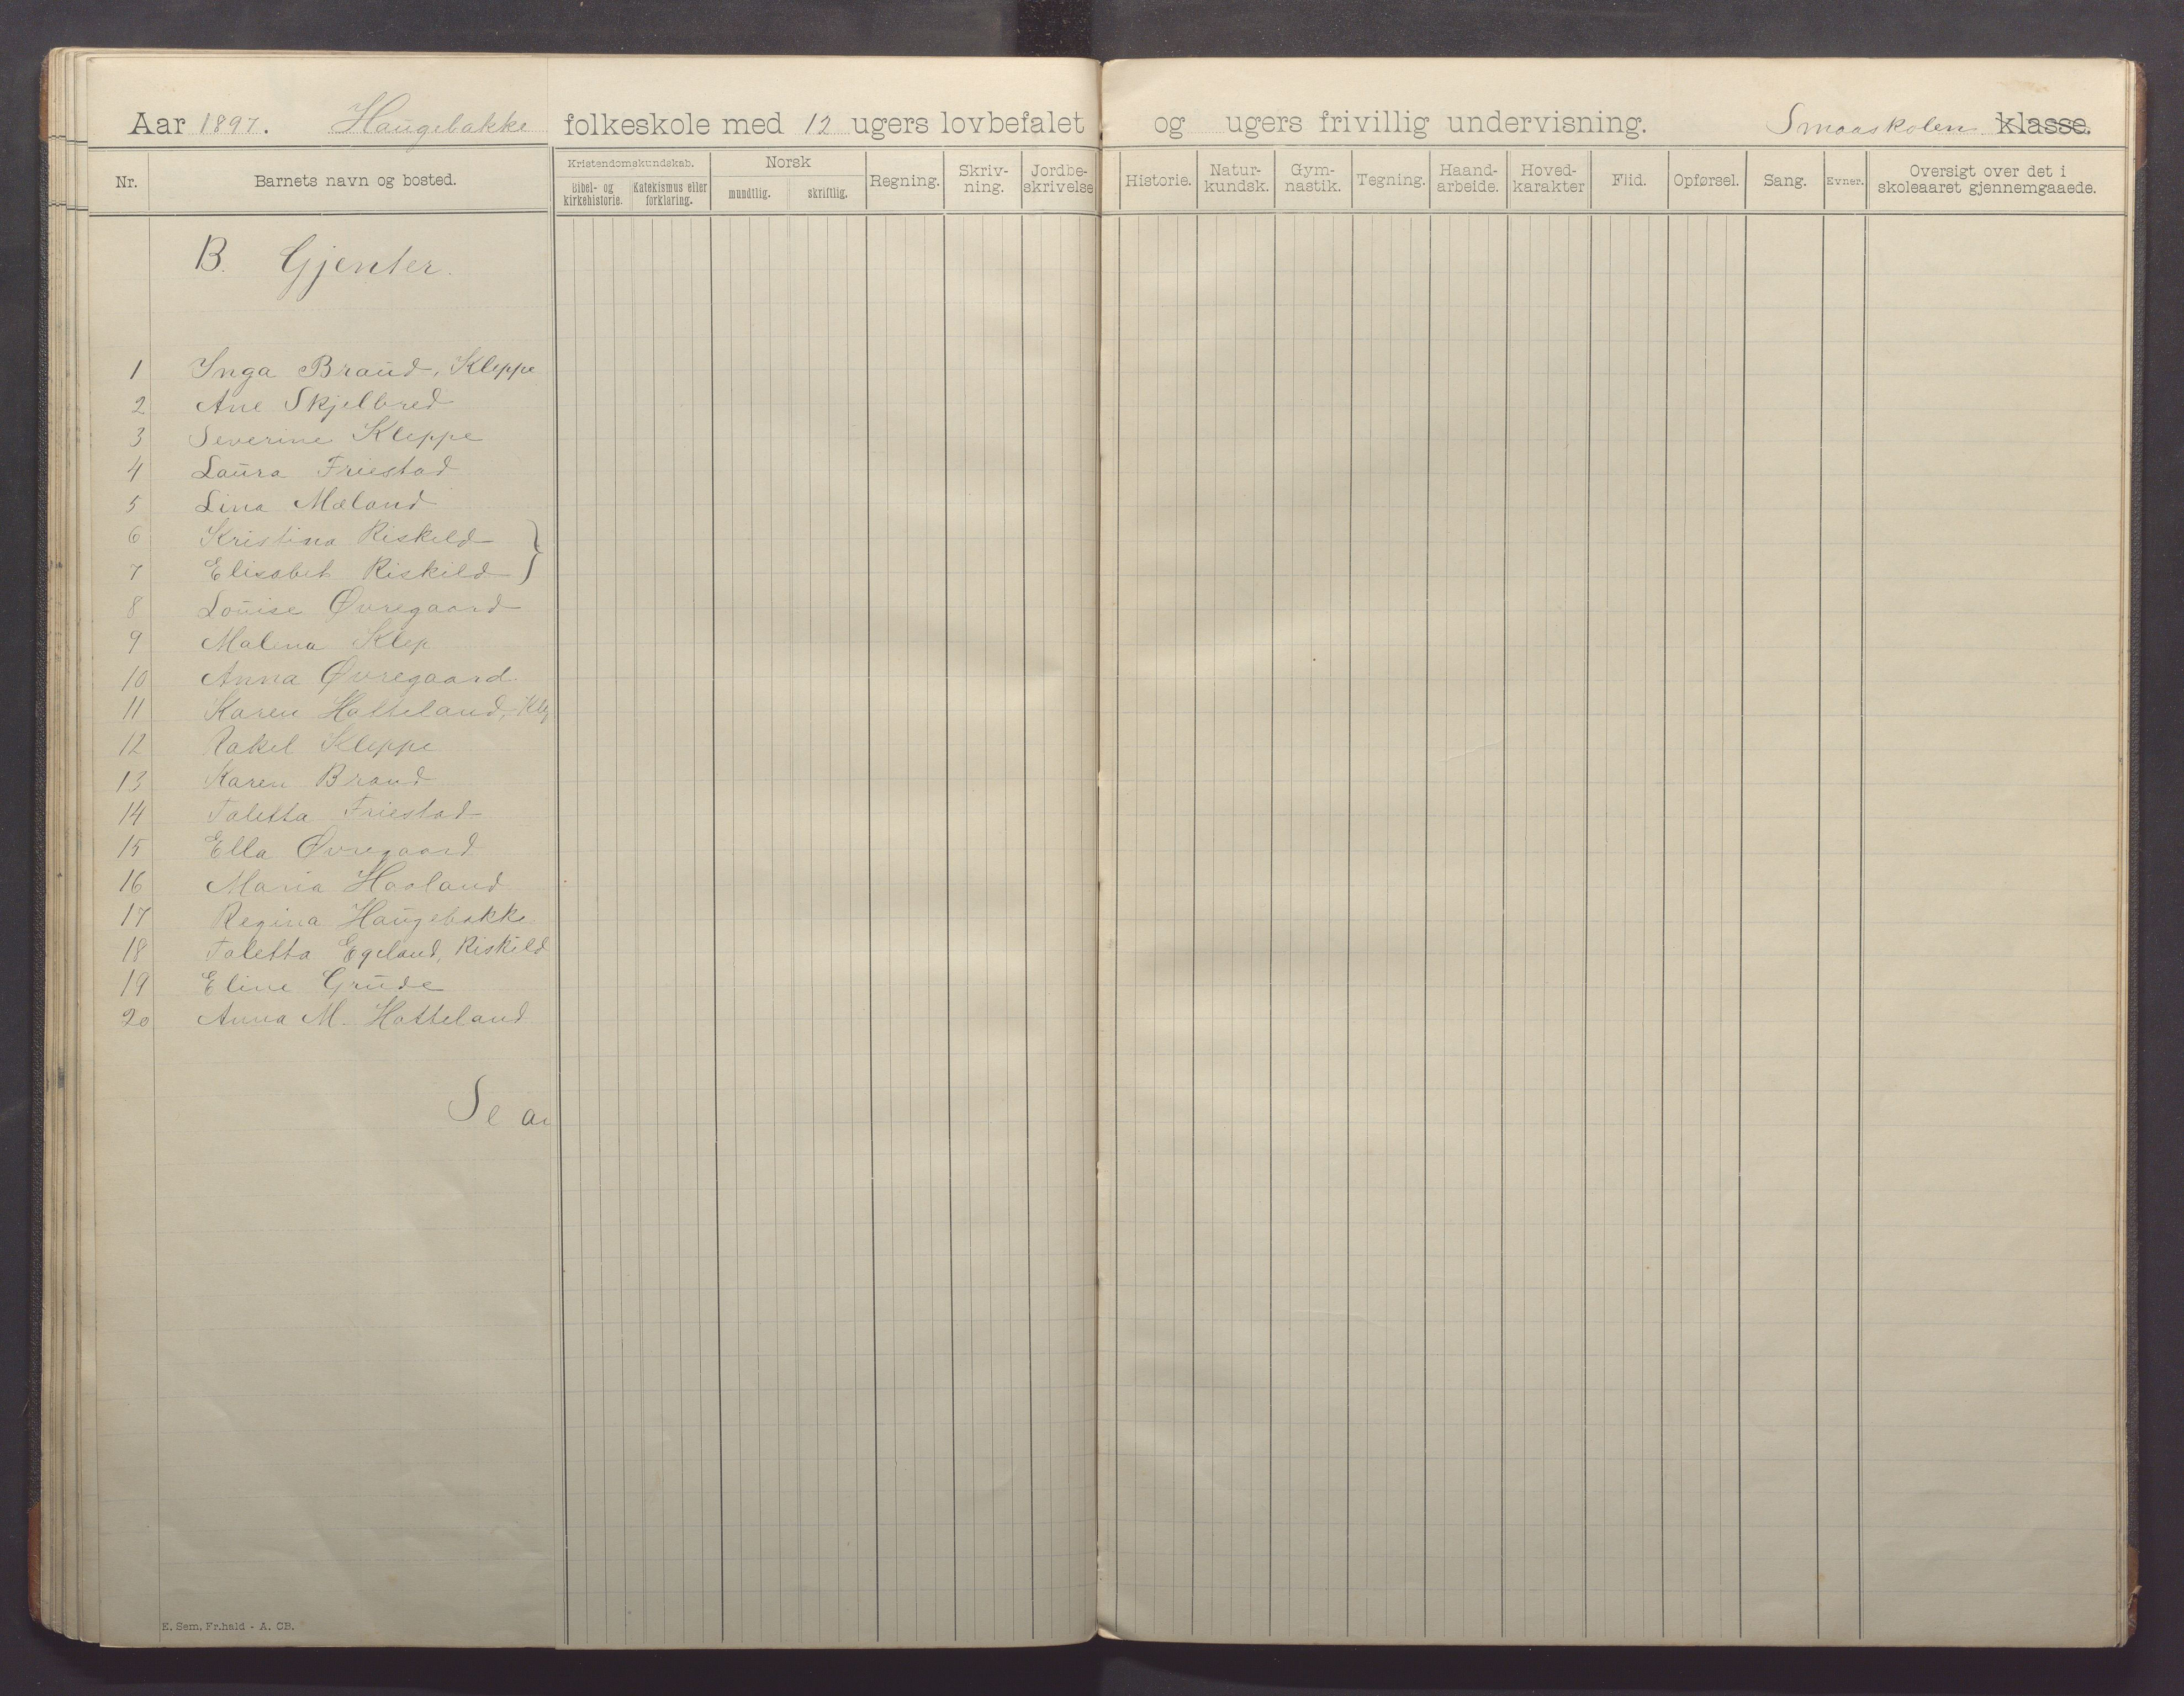 Aar 1897. Haugebakke folkeskole med 12 ugers lovbefalet og ugers frivillig undervisning. Smaaskolen klasse.
Nr. Barnets navn og bosted. Kristendomskundskab. Bibel- og kirkehistorie. Katekismus eller forklaring. Norsk mundtlig. skriftlig. Regning. Skriv-ning. Jordbe-skrivelse Historie. Natur-kundsk. Gym-nastik. Tegning. Haand-arbeide. Hoved-karakter Flid. Opførsel. Sang. Evner. Oversigt over det i skoleaaret gjennemgaaede.
B. Gjenter.
1 Inga Braud, Kleppe
2 Ane Skjelbred
3 Severine Kleppe
4 Laura Friestad
5 Lina Mæland
6 Kristina Riskild
7 Elisabet Riskild
8 Louise Øvregaard
9 Malena Klep
10 Anna Øvregaard
11 Karen Hatteland, Klep
12 Rakel Kleppe
13 Karen Braud
14 Taletta Friestad
15 Ella Øvregaard
16 Maria Haaland
17 Regina Haugebakke
18 Taletta Egeland, Riskild
19 Eline Grude
20 Anna M. Hatteland
Se
E. Sem, Fr.hald - A. CB.